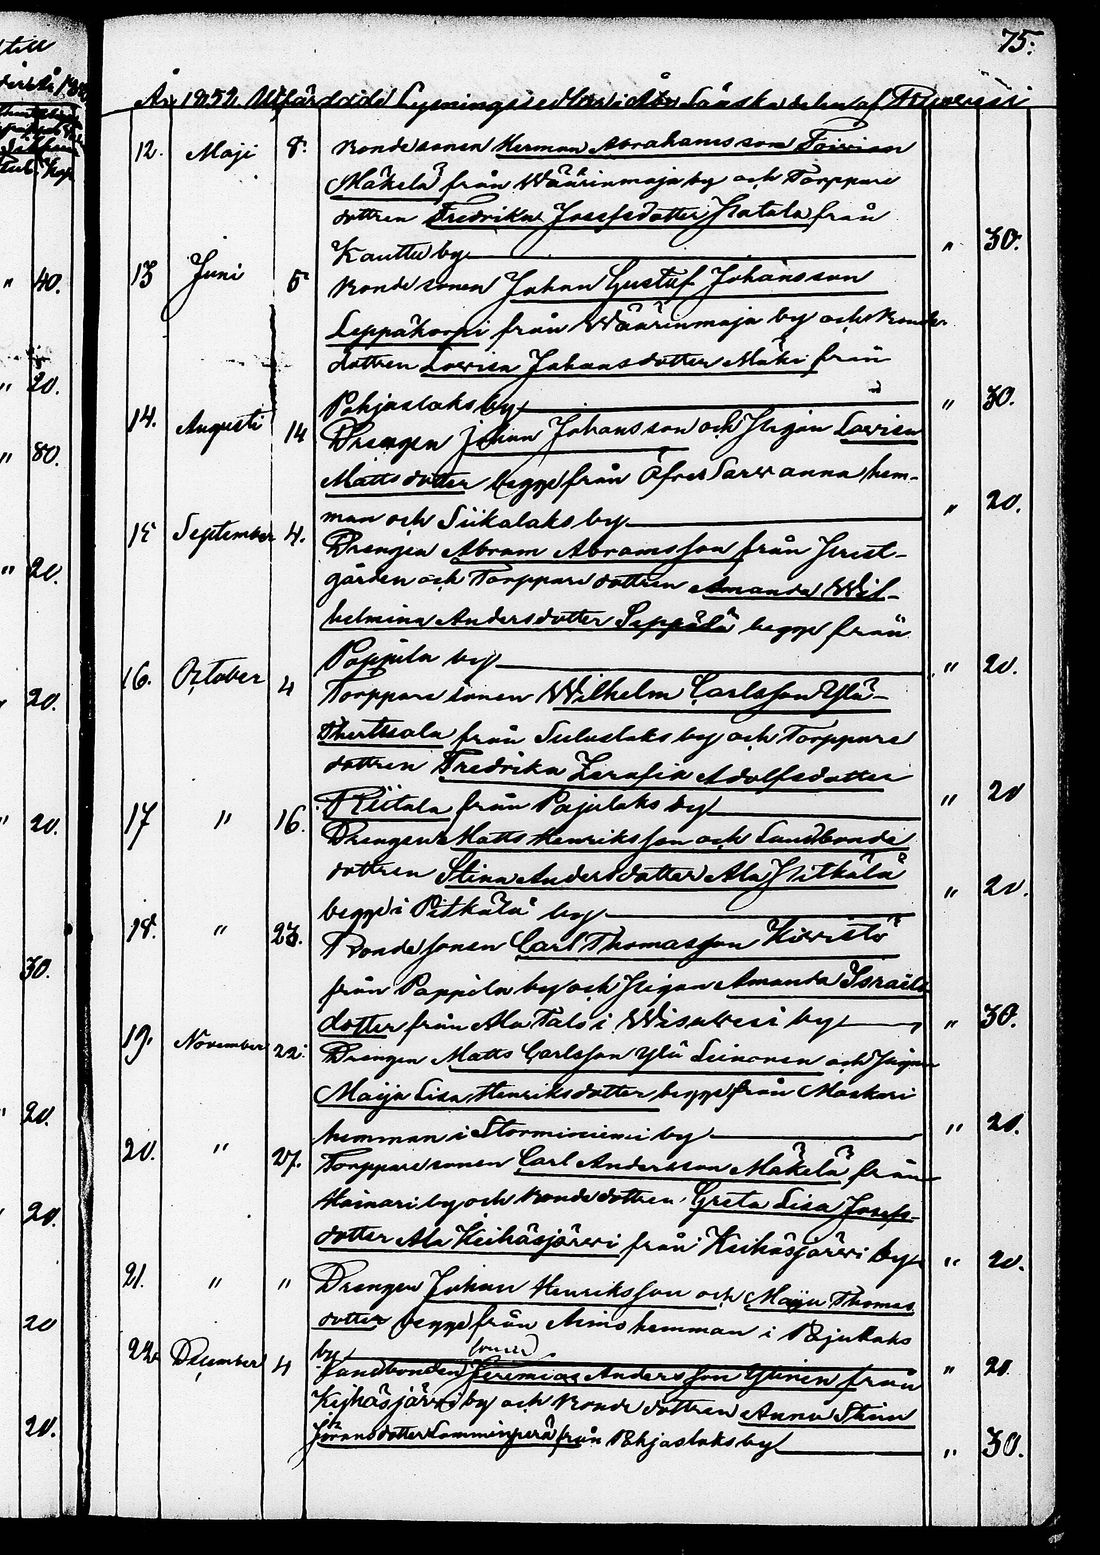 75.
År 1852 Utfärdade Lysningssedlar i Åbo Länska delen af
12. Maji 8. Bondesonen Herman Abrahamsson Toivian
Mäkelä från Wäärinmaja by och Torppare
dottren Fredrika Josefsdotter Hatala från
Kauttu by " 30.
13 Juni 5 Bondesonen Johan Gustaf Johansson
Leppäkorpi från Wäärinmaja by och Bonde
dottren Lovisa Johansdotter Mäki från
Pohjaslaks by " 30.
14. Augusti 14 Drengen Johan Johansson och Pigan Lovisa
Mattsdotter begge från Öfver Sarvanna hem-
man och Siikalaks by " 20.
15 September 4. Drengen Abram Abramsson från Prest-
gården och Torppare dottren Amanda Wil-
helmina Andersdotter Seppälä begge från
Pappila by " 20.
16. October 4 Torppare sonen Wilhelm Carlsson Ylä-
från by och Torppare
dottren Fredrika Serafia Adolfsdotter
Riitala från Pajulaks by " 20
17 " 16. Drengen Matts Henriksson och Landbonde
dottren Stina Andersdotter Ala Pitkälä
begge i Pitkälä by " 20.
18. " 23. Bondesonen Carl Thomasson Kivistö
från Pappila by och Pigan Amanda Israels
dotter från Ala Talsi Wisuvesi by " 30.
19. November 22. Drengen Matts Carlsson Ylä Leinonen och Pigan
Maija Lisa Henriksdotter begge från Maskari
hemman i Storminiemi by " 20.
20. " 27. Torppare sonen Carl Andersson Mäkelä från
Hainari by och Bondedottren Greta Lisa Josefs-
dotter Ala Keihäsjärvi från Keihäsjärvi by " 20.
21. " " Drengen Johan Henriksson och Maija Thomas
dotter begge från hemman i Pajulaks
by " 20
22. December 4 Landbonden (sonen) Jeremias Andersson Ylinen från
Keihäsjärvi by och Bonde dottren Anna Stina
Johansdotter Lamminperä från Pohjaslaks by " 30.
" 40.
" 20.
" 80.
" 20.
" 20.
" 20.
30.
" 20.
" 20.
20
20.